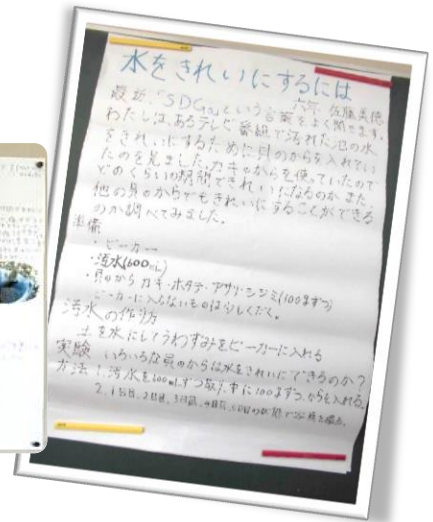 水をきれいにするには
六年 佐藤美徳
最近、「SDGs」という言葉をよく聞きます。
わたしは、あるテレビ番組で汚れた池の水
をきれいにするために貝のからを入れてい
たのを見ました。カキのからを使っていたので
どのくらいの期間できれいになるのか、また、
他の貝のからでもきれいにすることができる
のか調べてみました。
準備
・ビーカー
・汚水(600ml)
・貝のから カキ・ホタテ・アサリ・シジミ(100gずつ)
ビーカーに入らないものは少しくだく。
汚水の作り方
土を水にしてうわずみをビーカーに入れる
実験 いろいろな貝のからは水をきれいにできるのか?
方法 1. 汚水を600mlずつ 中に100gずつ、からを入れる。
2. 1日目、2日目、3日目、4日目、5日目の